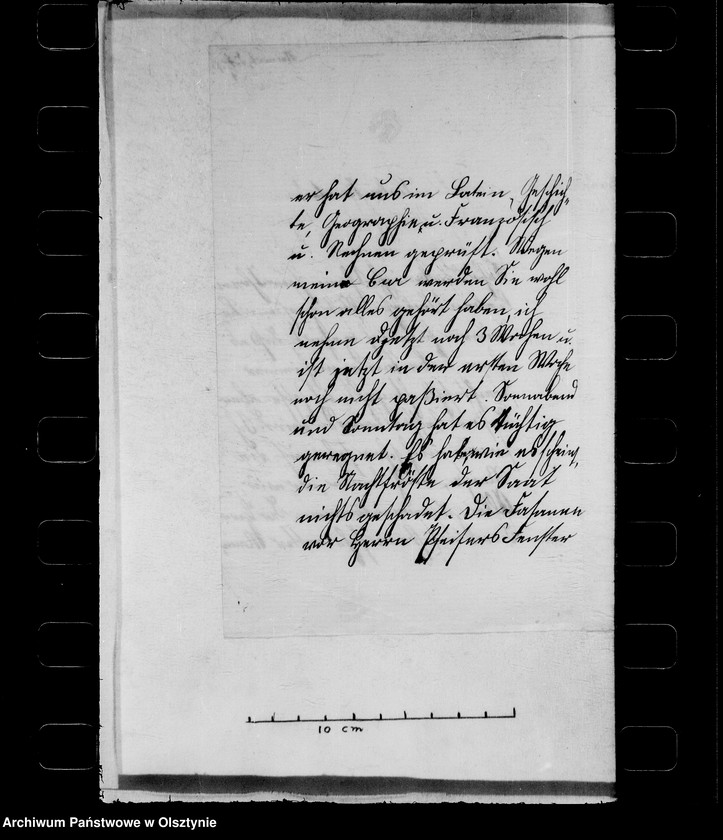 er hat uns im Latein, Geschich-
te, Geographie, u. Französisch
u. Rechnen geprüft. Wegen
meine Cur werden Sie wohl
schon alles gehört haben, ich
nehme jetzt noch 3 Wochen u.
ist jetzt in der ersten Woche
noch nicht paßiert. Sonnabend
und Sonntag hat es tüchtig
geregnet. Es hat wie es scheint,
die Nachtfröste der Saat
nichts geschadet. Die Fasanen
vor Herrn Pfeifers Fenster
10 cm
Archiwum Państwowe w Olsztynie